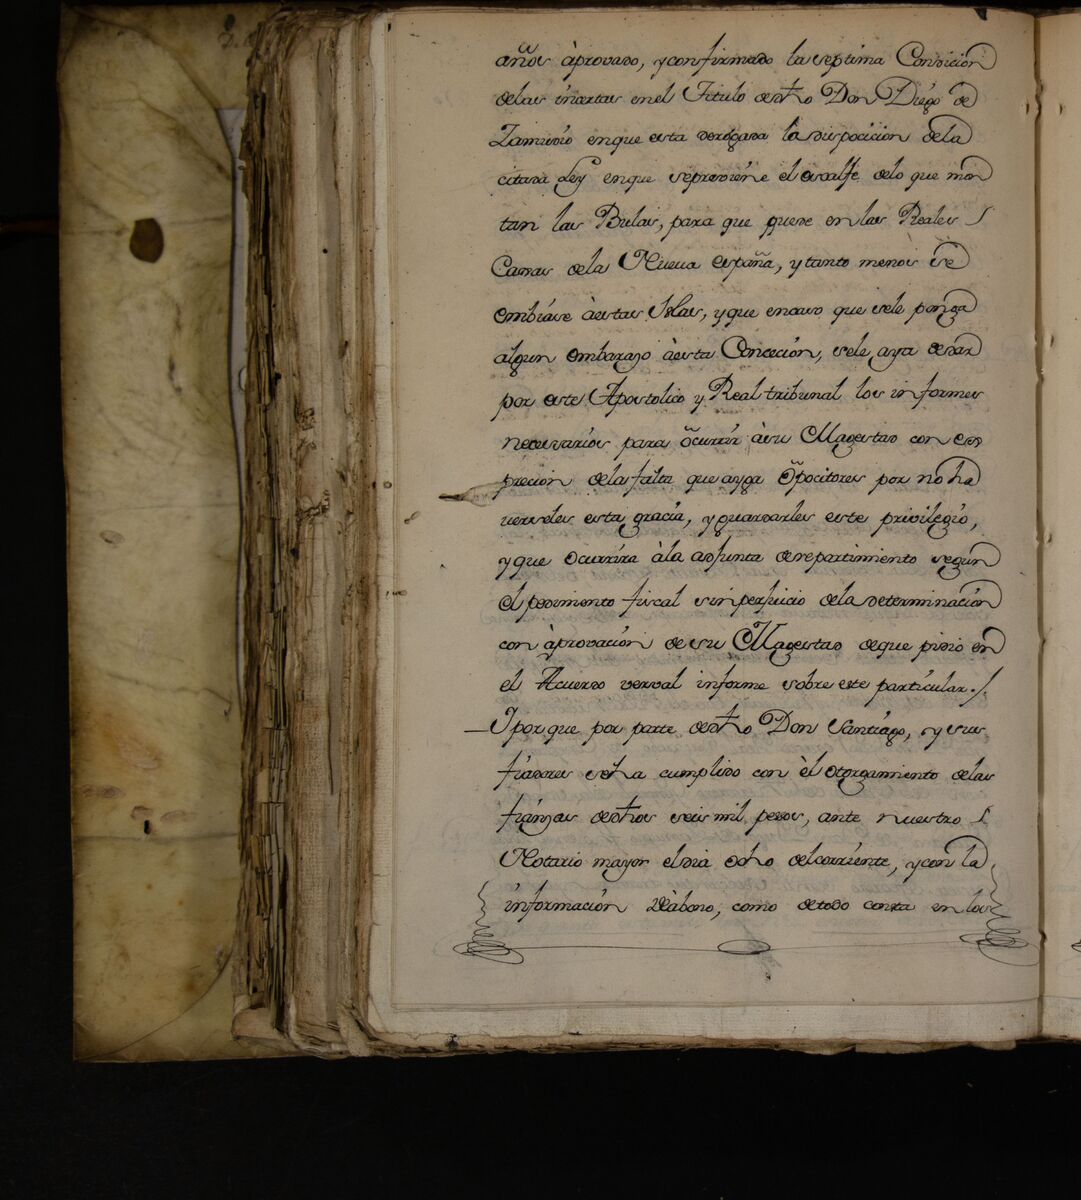 años àprovado, y confirmado la septima Condicion
delas incertas enel Titulo dedho Don Diego de
Zamudio enque esta derógada la disposicion dela
citada Ley enque seprebiene el desalfe delo que mon
tan las Bulas, para que quede en las Reales
Caxas dela Nueva españa, y tanto menos se
embiáse àestas Islas, y que encaso que sele ponga
algun embarazo àesta Concecion, sele aya dedar
por este Apostolico y Real tribunal los informes
necesarios para òcurrir àsu Magestad con es
precion dela falta que ayga òpocitores por no ha
verseles esta gracia, y guardarles este privilegio,
y que ocurrira àla adjunta derepartimiento segun
el pedimento fiscal sinperjuicio dela determinacion
con àprovacion de su Magestad deque pidio en
el Acuerdo verval informe sobre este particular./.
Y por que por parte dedho Don Santiago, y sus
fiadores seha cumplido con èl otorgamiento delas
fianzas dedhos seis mil pesos, ante nuestro
Notario mayor eldia ocho delcorriente, y con la
informacion deàbono, como detodo consta en los